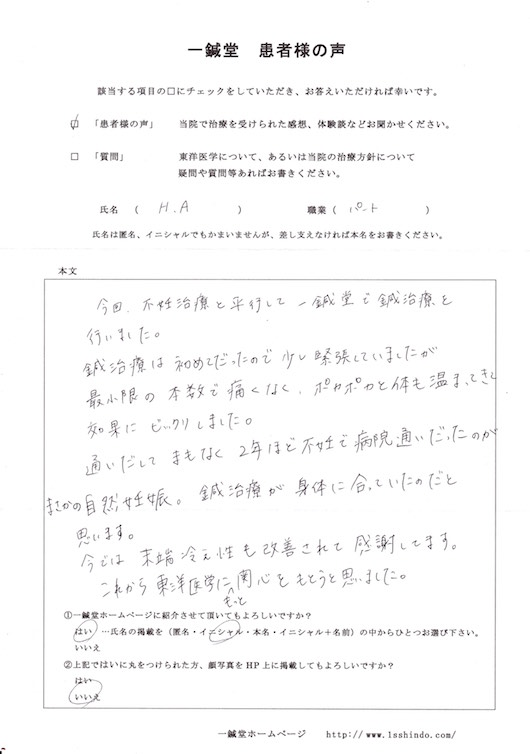 一鍼堂　患者様の声
該当する項目の□にチェックをしていただき、お答えいただければ幸いです。
☑　「患者様の声」　当院で治療を受けられた感想、体験談などお聞かせください。
□　「質問」　東洋医学について、あるいは当院の治療方針について
疑問や質問等あればお書きください。
氏名　（　H.A　）　職業（　パート　）
氏名は匿名、イニシャルでもかまいませんが、差し支えなければ本名をお書きください。
本文
今回、不妊治療と平行して一鍼堂で鍼治療を
行いました。
鍼治療は初めてだったので少し緊張していましたが
最小限の本数で痛くなく、ポカポカと体も温まってきて
効果にビックリしました。
通いだしてまもなく2年ほど不妊で病院通いだったのが
まさかの自然妊娠。鍼治療が身体に合っていたのだと
思います。
今では末端冷え性も改善されて感謝してます。
これから東洋医学に関心をもとうと思いました。
もっと
①一鍼堂ホームページに紹介させて頂いてもよろしいですか？
はい　…氏名の掲載を（匿名・イニシャル・本名・イニシャル＋名前）の中からひとつお選び下さい。
いいえ
②上記ではいに丸をつけられた方、顔写真をHP上に掲載してもよろしいですか？
はい
いいえ
一鍼堂ホームページ　http://www.1sshindo.com/